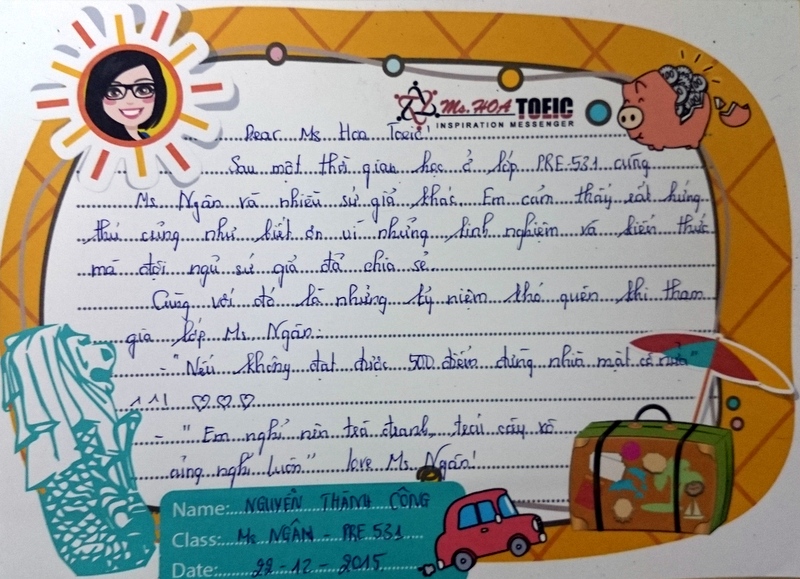 Ms. HOA TOEIC
INSPIRATION MESSENGER
Dear Ms Hoa Toeic!
Sau một thời gian học ở lớp PRE-531 cùng
Ms. Ngân và nhiều sứ giả khác. Em cảm thấy rất hứng
thú cũng như biết ơn vì những kinh nghiệm và kiến thức
mà đội ngủ sứ giả đã chia sẻ.
Cùng với đó là những kỷ niệm khó quên khi tham
gia lớp Ms. Ngân:
- "Nếu không đạt được 500 điểm đừng nhìn mặt cô nữa"
!!! ♡♡♡
- "Em nghỉ nên trà chanh, trái cây rồi
cũng nghỉ luôn" love Ms. Ngân!
Name: NGUYỄN THÀNH CÔNG
Class: Ms. NGÂN - PRE 531
Date: 22-12-2015